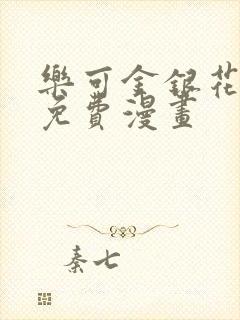 樂可金銀花
免費漫畫
秦七